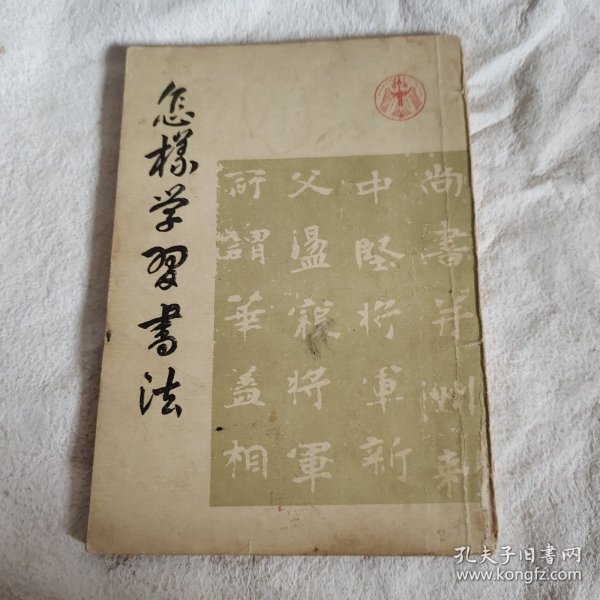 怎樣学習書法
尚書并洲刺
中堅將軍新
父盪寇將軍
所謂華蓋相
孔夫子旧書网
www.kongfz.com